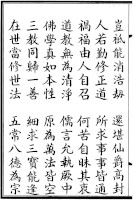 豈祗能消浩刼　還堪仙爵高封
人若勤修正道　所求事事皆通
禍福由人自召　何苦自昧其衷
道教無為清淨　儒言允執厥中
佛學真如本性　原無法相皆空
三教同歸一善　細求三寶能逢
在世當修世法　五常八德為宗